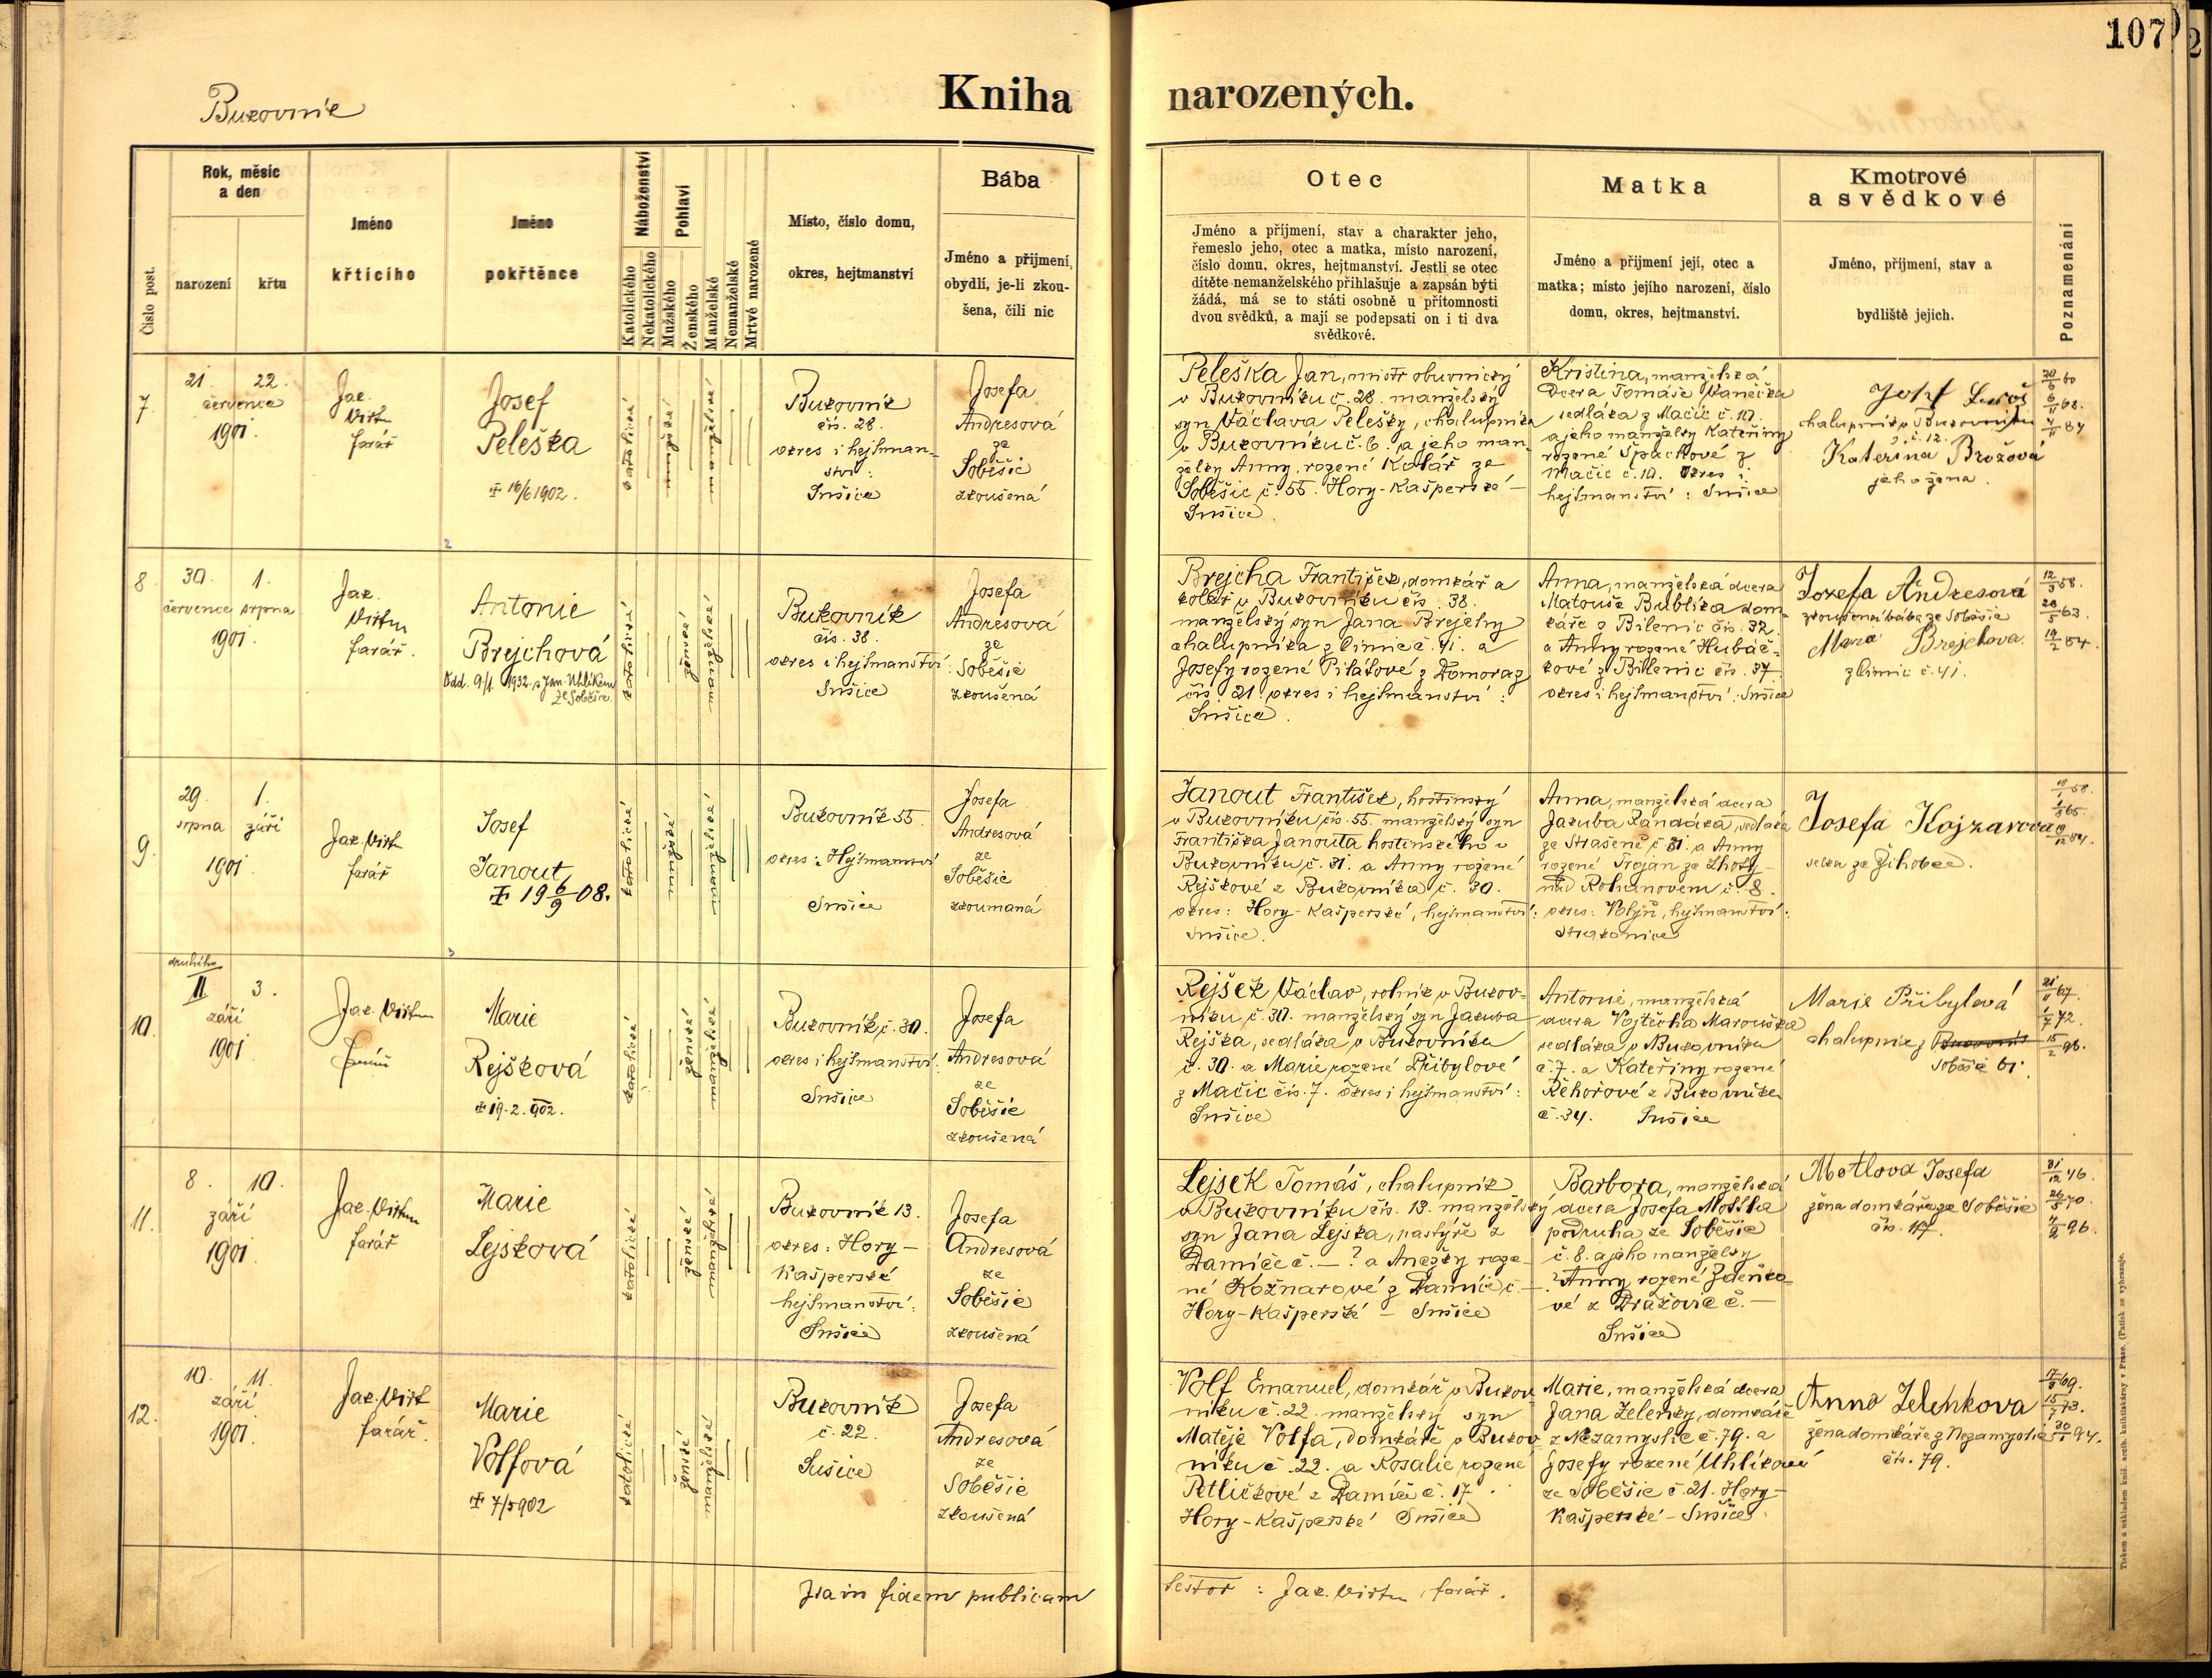 107
Bukovník
Kniha narozených.
Číslo post.
Rok, měsíc
a den
narození
křtu
Jméno
křtícího
Jméno
pokřtěnce
Náboženství
Katolického
Nekatolického
Pohlaví
Mužského
Ženského
Manželské
Nemanželské
Mrtvě narozené
Místo, číslo domu,
okres, hejtmanství
Bába
Jméno a přijmení,
obydlí, je-li zkou-
šena, čili nic
Otec
Jméno a příjmení, stav a charakter jeho,
řemeslo jeho, otec a matka, místo narození,
číslo domu, okres, hejtmanství. Jestli se otec
dítěte nemanželského přihlašuje a zapsán býti
žádá, má se to státi osobně u přítomnosti
dvou svědků, a mají se podepsati on i ti dva
svědkové.
Matka
Jméno a přijmení její, otec a
matka; místo jejího narození, číslo
domu, okres, hejtmanství.
Kmotrové
a svědkové
Jméno, příjmení, stav a
bydliště jejich.
Poznamenání
7.
21. 22.
července
1901.
Jak.
Virt
farář
Josef
Peleška
16/6 1902.
katolické
mužské
manželské
Bukovník
čís. 28.
okres i hejtman-
ství:
Sušice
Josefa
Andresová
ze
Soběšic
zkoušená
Peleška Jan, mistr obuvnický
v Bukovníku č. 28. manželský
syn Václava Pelešky, chalupníka
v Bukovníku č. 6. a jeho man-
želky Anny, rozené Kolář ze
Soběšic č. 55. Hory-Kašperské -
Sušice.
Kristina, manželská
dcera Tomáše Vanečka
sedláka z Mačic č. 10.
a jeho manželky Kateřiny
rozené Špačkové z
Mačic č. 10. Okres i
hejtmanství: Sušice
Josef
chalupník v Bukovníku
č. 12.
Kateřina Brožová
jeho žena.
8
30. 1.
července srpna
1901.
Jak.
Virt
farář.
Antonie
Brejchová
Odd. 9/1. 1932 s Jan. Uhlíkem
ze Soběšic.
katolické
ženské
manželské
Bukovník
čís. 38.
okres i hejtmanství:
Sušice
Josefa
Andresová
ze
Soběšic
zkoušená
Brejcha František, domkář a
kolář v Bukovníku čís. 38.
manželský syn Jana Brejchy
chalupníka z Čimic č. 41. a
Josefy rozené Pilátové z Domoraz
čís 21. okres i hejtmanství:
Sušice.
Anna, manželská dcera
Matouše Bublíka dom-
káře z Bilenic čís. 32.
a Anny rozené Hubáč-
kové z Bilenic čís. 37.
okres i hejtmanství: Sušice
Josefa Andresová
zkoušená bába ze Soběšic
Marie Brejchova
z Čimic č. 41.
12/3 58.
28/5 63.
19/2 84.
9.
29. 1.
srpna září
1901
Jak. Virt
farář
Josef
Janout
19 6/9 08.
katolické
mužské
manželské
Bukovník 55.
okres: Hejtmanství
Sušice
Josefa
Andresová
ze
Soběšic
zkoumaná
Janout František, hostinský
v Bukovníku, čís. 55. manželský syn
Františka Janouta hostinského v
Bukovníku, č. 31. a Anny rozené
Rejškové z Bukovníka č. 30.
okres: Hory-Kašperské, hejtmanství:
Sušice.
Anna, manželská dcera
Jakuba Kandáka, sedláka
ze Strašeně č. 31. a Anny
rozené Trojan ze Lhoty-
nad Rohanovem č. 8.
okres: Volyň, hejtmanství:
Strakonice
Josefa Kojzarova
selka ze Žihobec.
10.
druhého
II 3.
září
1901
Jak. Virt
farář
Marie
Rejšková
19.2.902.
katolické
ženské
manželské
Bukovník, č. 30.
okres i hejtmanství:
Sušice
Josefa
Andresová
ze
Soběšic
zkoušená
Rejšek Václav, rolník v Bukov-
níku, č. 30. manželský syn Jakuba
Rejška, sedláka v Bukovníku
č. 30. a Marie rozené Přibylové
z Mačic čís. 7. okres i hejtmanství:
Sušice
Antonie, manželská
dcera Vojtěcha Marouška
sedláka v Bukovníku
č. 7. a Kateřiny rozené
Řehořové z Bukovníka
č. 34. Sušice
Marie Přibylová
chalupnic z Bukovník
Soběšic 61.
21/11 67.
1/7 72.
15/2 96.
11.
8. 10.
září
1901
Jak. Virt
farář
Marie
Lejsková
katolické
ženské
manželské
Bukovník 13.
okres: Hory -
Kašperské
hejtmanství:
Sušice
Josefa
Andresová
ze
Soběšic
zkoušená
Lejsek Tomáš, chalupník
v Bukovníku čís. 13. manželský
syn Jana Lejska, pastýře z
Damíče č. - ? a Anežky roze-
né Kožnarové z Damíče, č. -.
Hory-Kašperské - Sušice
Barbora, manželská
dcera Josefa Mottla
podruha ze Soběšic
č. 8. a jeho manželky
Anny rozené Zdeňko-
vé z Dražovic č. -
Sušice
Motlova Josefa
žena domkáře ze Soběšic
čís. 47.
31/12 46.
26/5 70.
4/2 96.
12.
10. 11.
září
1901.
Jak. Virt
farář.
Marie
Volfová
7/5 902
katolické
ženské
manželské
Bukovník
č. 22.
Sušice
Josefa
Andresová
ze
Soběšic
zkoušená
Volf Emanuel, domkář v Bukov-
níku č. 22. manželský syn
Matěje Volfa, domkáře v Bukov-
níku č. 22. a Rosalie rozené
Petličkové z Damíče č. 17.
Hory-Kašperské Sušice
Marie, manželská dcera
Jana Zelenky, domkáře
z Nezamyslic č. 79. a
Josefy rozené Uhlíkové
ze Soběšic č. 21. Hory-
Kašperské - Sušice.
Anna Zelenkova
žena domkáře z Nezamyslic
čís. 79.
Ita in fidem publicam
testor: Jak. Virt, farář.
Tiskem a nákladem kníž. arcib. knihtiskárny v Praze. (Patisk se vyhrazuje.